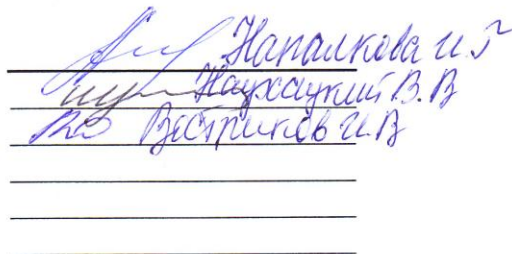 Напалкова И.Г
Наухацкий В.В
Вестриков И.В